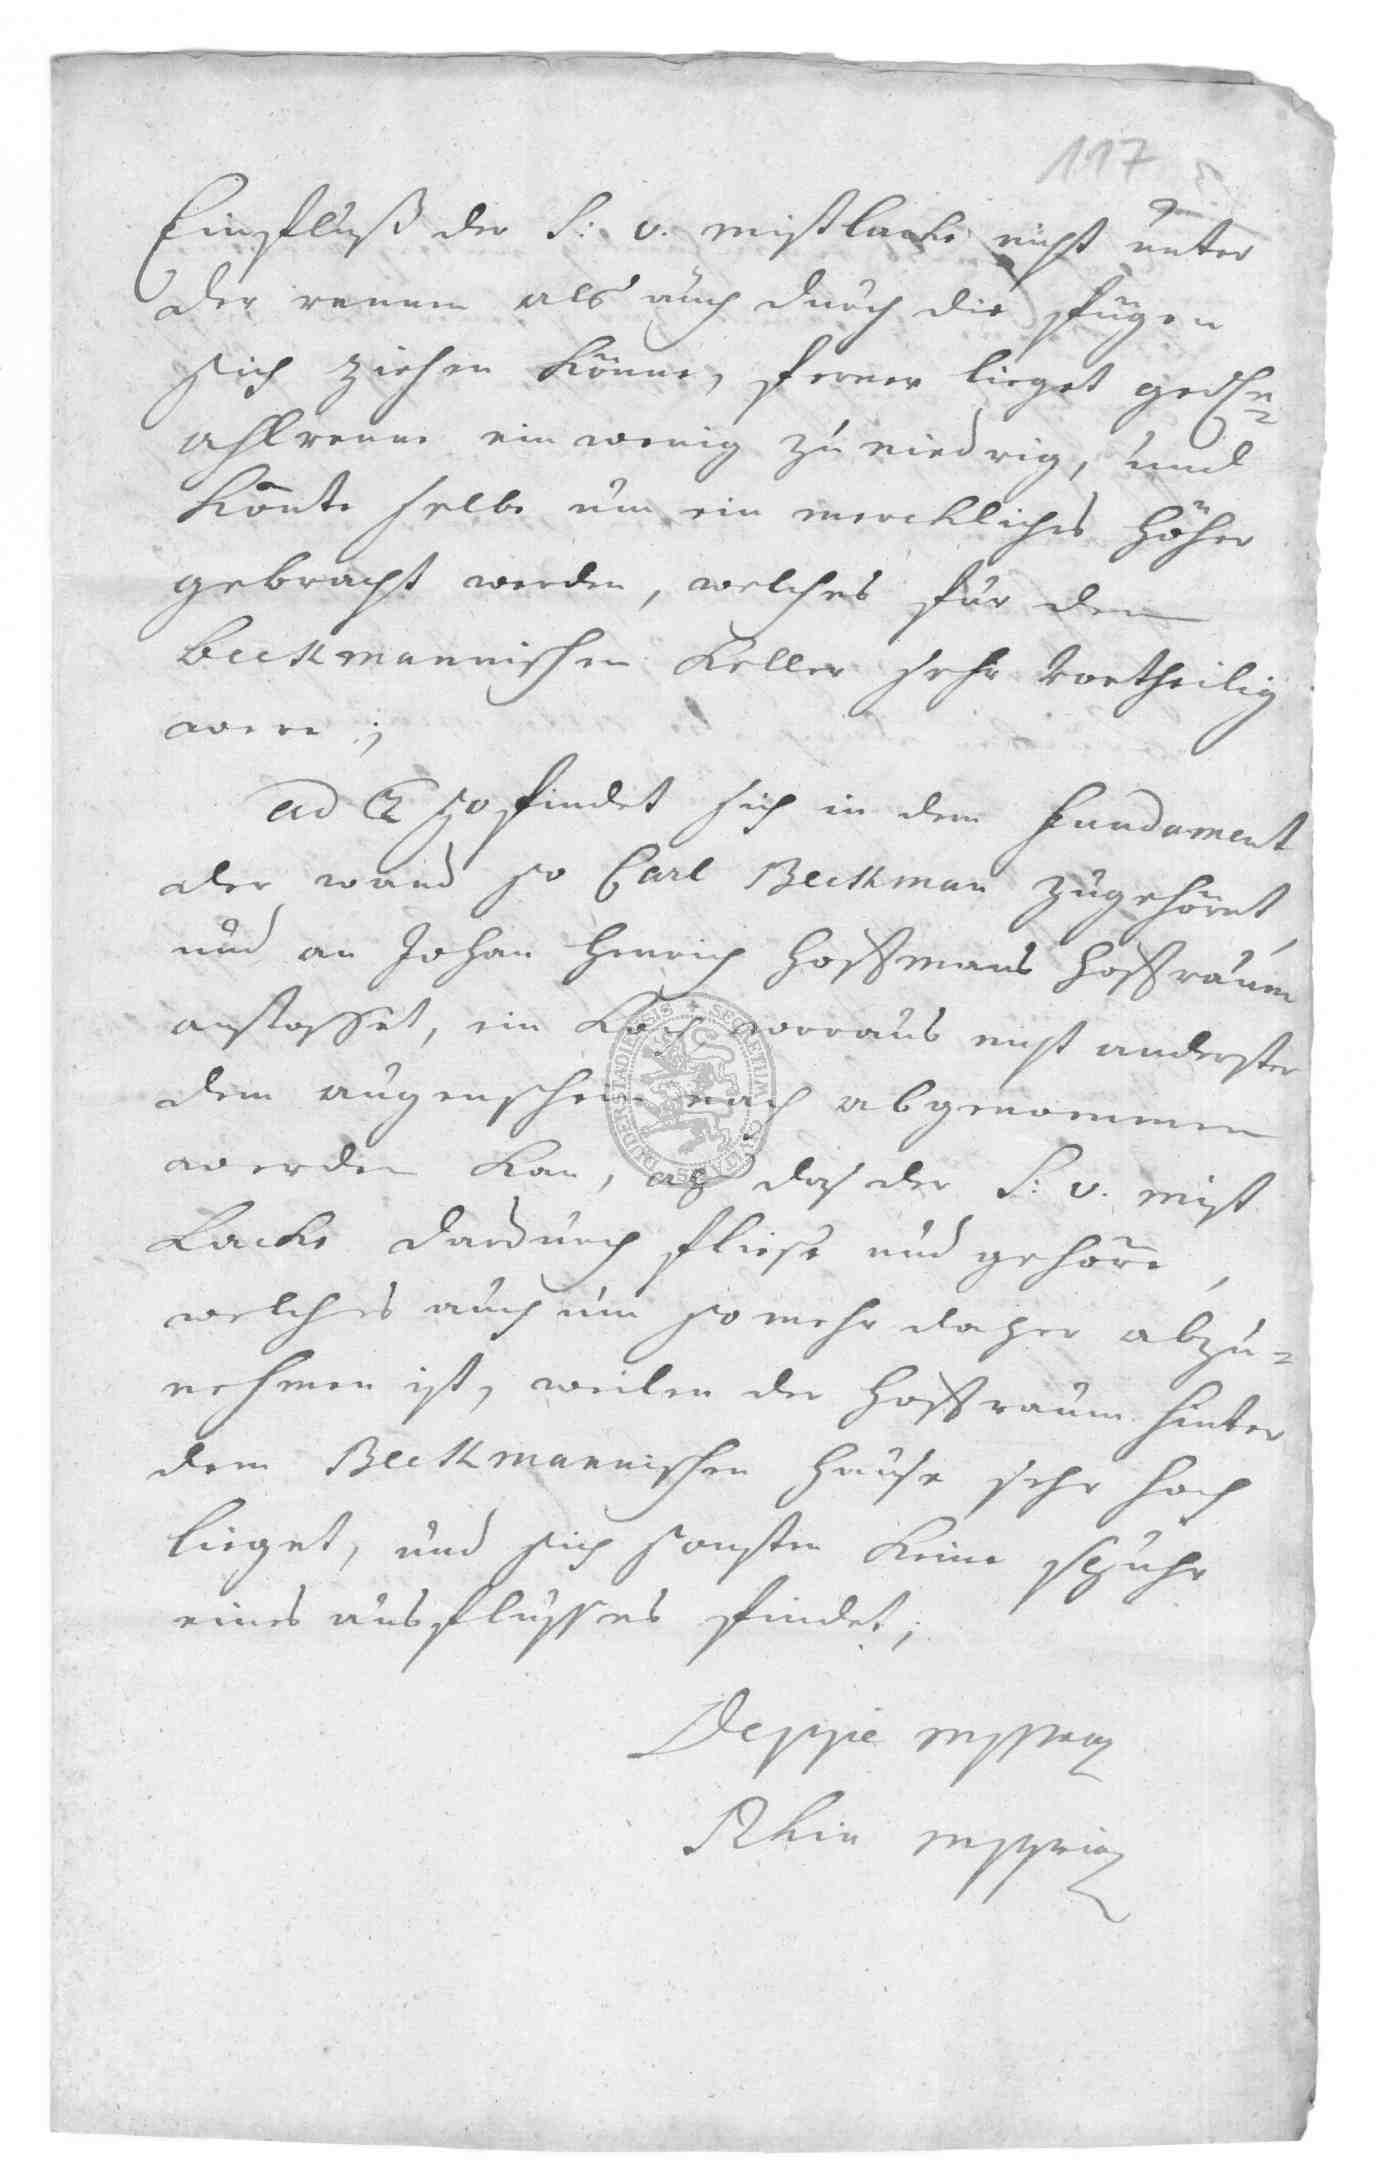 117
Einfluß der S: v. mistlacke nicht unter
der rennen als auch durch die fugen
sich ziehen könne, ferner lieget
ahlrenne ein wenig zu niedrig, und
könte selbe um ein merckliches höher
gebracht werden, welches für den
Beckmannischen Keller sehr vortheilig
were;
ad 2 so findet sich in dem Fundament
der wand so Carl Beckman zugehöret,
und an Johan Henrich Hoffmans Hoffraum
anstosset, ein Loch, worraus nicht anderster
dem augenschein nach abgenommen
werden kan, als das der S: v. mist
Lacke dardurch fliese und gehöre,
welches auch um so mehr daher abzu=
nehmen ist, weilen der Hoffraum hinter
dem Beckmannischen Hause sehr hoch
lieget, und sich sonsten keine spuhr
eines ausflusses findet;
Deppe mppria
Rhin mppria
SECRETUM CIVITATIS DUDERSTADIENSIS